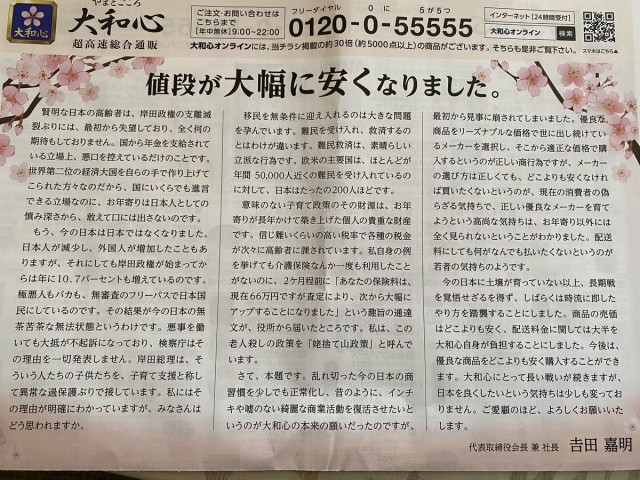 やまとごころ
大和心
超高速総合通販
大和心
ご注文・お問い合わせは
こちらまで
[年中無休]9:00~22:00
フリーダイヤル 0に 5が5つ
0120-0-55555
インターネット[24時間受付]
大和心オンライン 検索
スマホはこちら▲
大和心オンラインには、当チラシ掲載の約30倍(約5000点以上)の商品がございます。そちらも是非ご覧下さい。
値段が大幅に安くなりました。
賢明な日本の高齢者は、岸田政権の支離滅
裂ぶりには、最初から失望しており、全く何の
期待もしておりません。国から年金を支給されて
いる立場上、悪口を控えているだけのことです。
世界第二位の経済大国を自らの手で作り上げて
こられた方々なのだから、国にいくらでも進言
できる立場なのに、お年寄りは日本人としての
慎み深さから、敢えて口には出さないのです。
もう、今の日本は日本ではなくなりました。
日本人が減少し、外国人が増加したこともあ
りますが、それにしても岸田政権が始まってか
らは年に10.7パーセントも増えているのです。
極悪人もバカも、無審査のフリーパスで日本国
民にしているのです。その結果が今の日本の無
茶苦茶な無法状態というわけです。悪事を働
いても大抵が不起訴になっており、検察庁はそ
の理由を一切発表しません。岸田総理は、そ
ういう人たちの子供たちを、子育て支援と称し
て異常な過保護ぶりで接しています。私にはそ
の理由が明確にわかっていますが、みなさんは
どう思われますか。
移民を無条件に迎え入れるのは大きな問題
を孕んでいます。難民を受け入れ、救済するの
とはわけが違います。難民救済は、素晴らしい
立派な行為です。欧米の主要国は、ほとんどが
年間50,000人近くの難民を受け入れているの
に対して、日本はたったの200人ほどです。
意味のない子育て政策のその財源は、お年
寄りが長年かけて築き上げた個人の貴重な財産
です。信じ難いくらいの高い税率で各種の税金
が次々に高齢者に課されています。私自身の例
を挙げても介護保険なんか一度も利用したこと
がないのに、2ヶ月程前に「あなたの保険料は、
現在66万円ですが査定により、次から大幅に
アップすることになりました」という趣旨の通達
文が、役所から届いたところです。私は、この
老人殺しの政策を「姥捨て山政策」と呼んで
います。
さて、本題です。乱れ切った今の日本の商
習慣を少しでも正常化し、昔のように、インチ
キや嘘のない綺麗な商業活動を復活させたいと
いうのが大和心の本来の願いだったのですが、
最初から見事に崩されてしまいました。優良な
商品をリーズナブルな価格で世に出し続けてい
るメーカーを選択し、そこから適正な価格で購
入するというのが正しい商行為ですが、メーカー
の選び方は正しくても、どこよりも安くなけれ
ば買いたくないというのが、現在の消費者の偽
らざる気持ちで、正しい優良なメーカーを育て
ようという高尚な気持ちは、お年寄り以外には
全く見られないということがわかりました。配送
料にしても何がなんでも払いたくないというのが
若者の気持ちのようです。
今の日本に土壌が育っていない以上、長期戦
を覚悟せざるを得ず、しばらくは時流に即した
やり方を踏襲することにしました。商品の売価
はどこよりも安く、配送料金に関しては大半を
大和心自身が負担することにしました。今後は、
優良な商品をどこよりも安く購入することができ
ます。大和心にとって長い戦いが続きますが、
日本を良くしたいという気持ちは少しも変ってお
りません。ご愛顧のほど、よろしくお願いいた
します。
代表取締役会長 兼 社長 𠮷田 嘉明